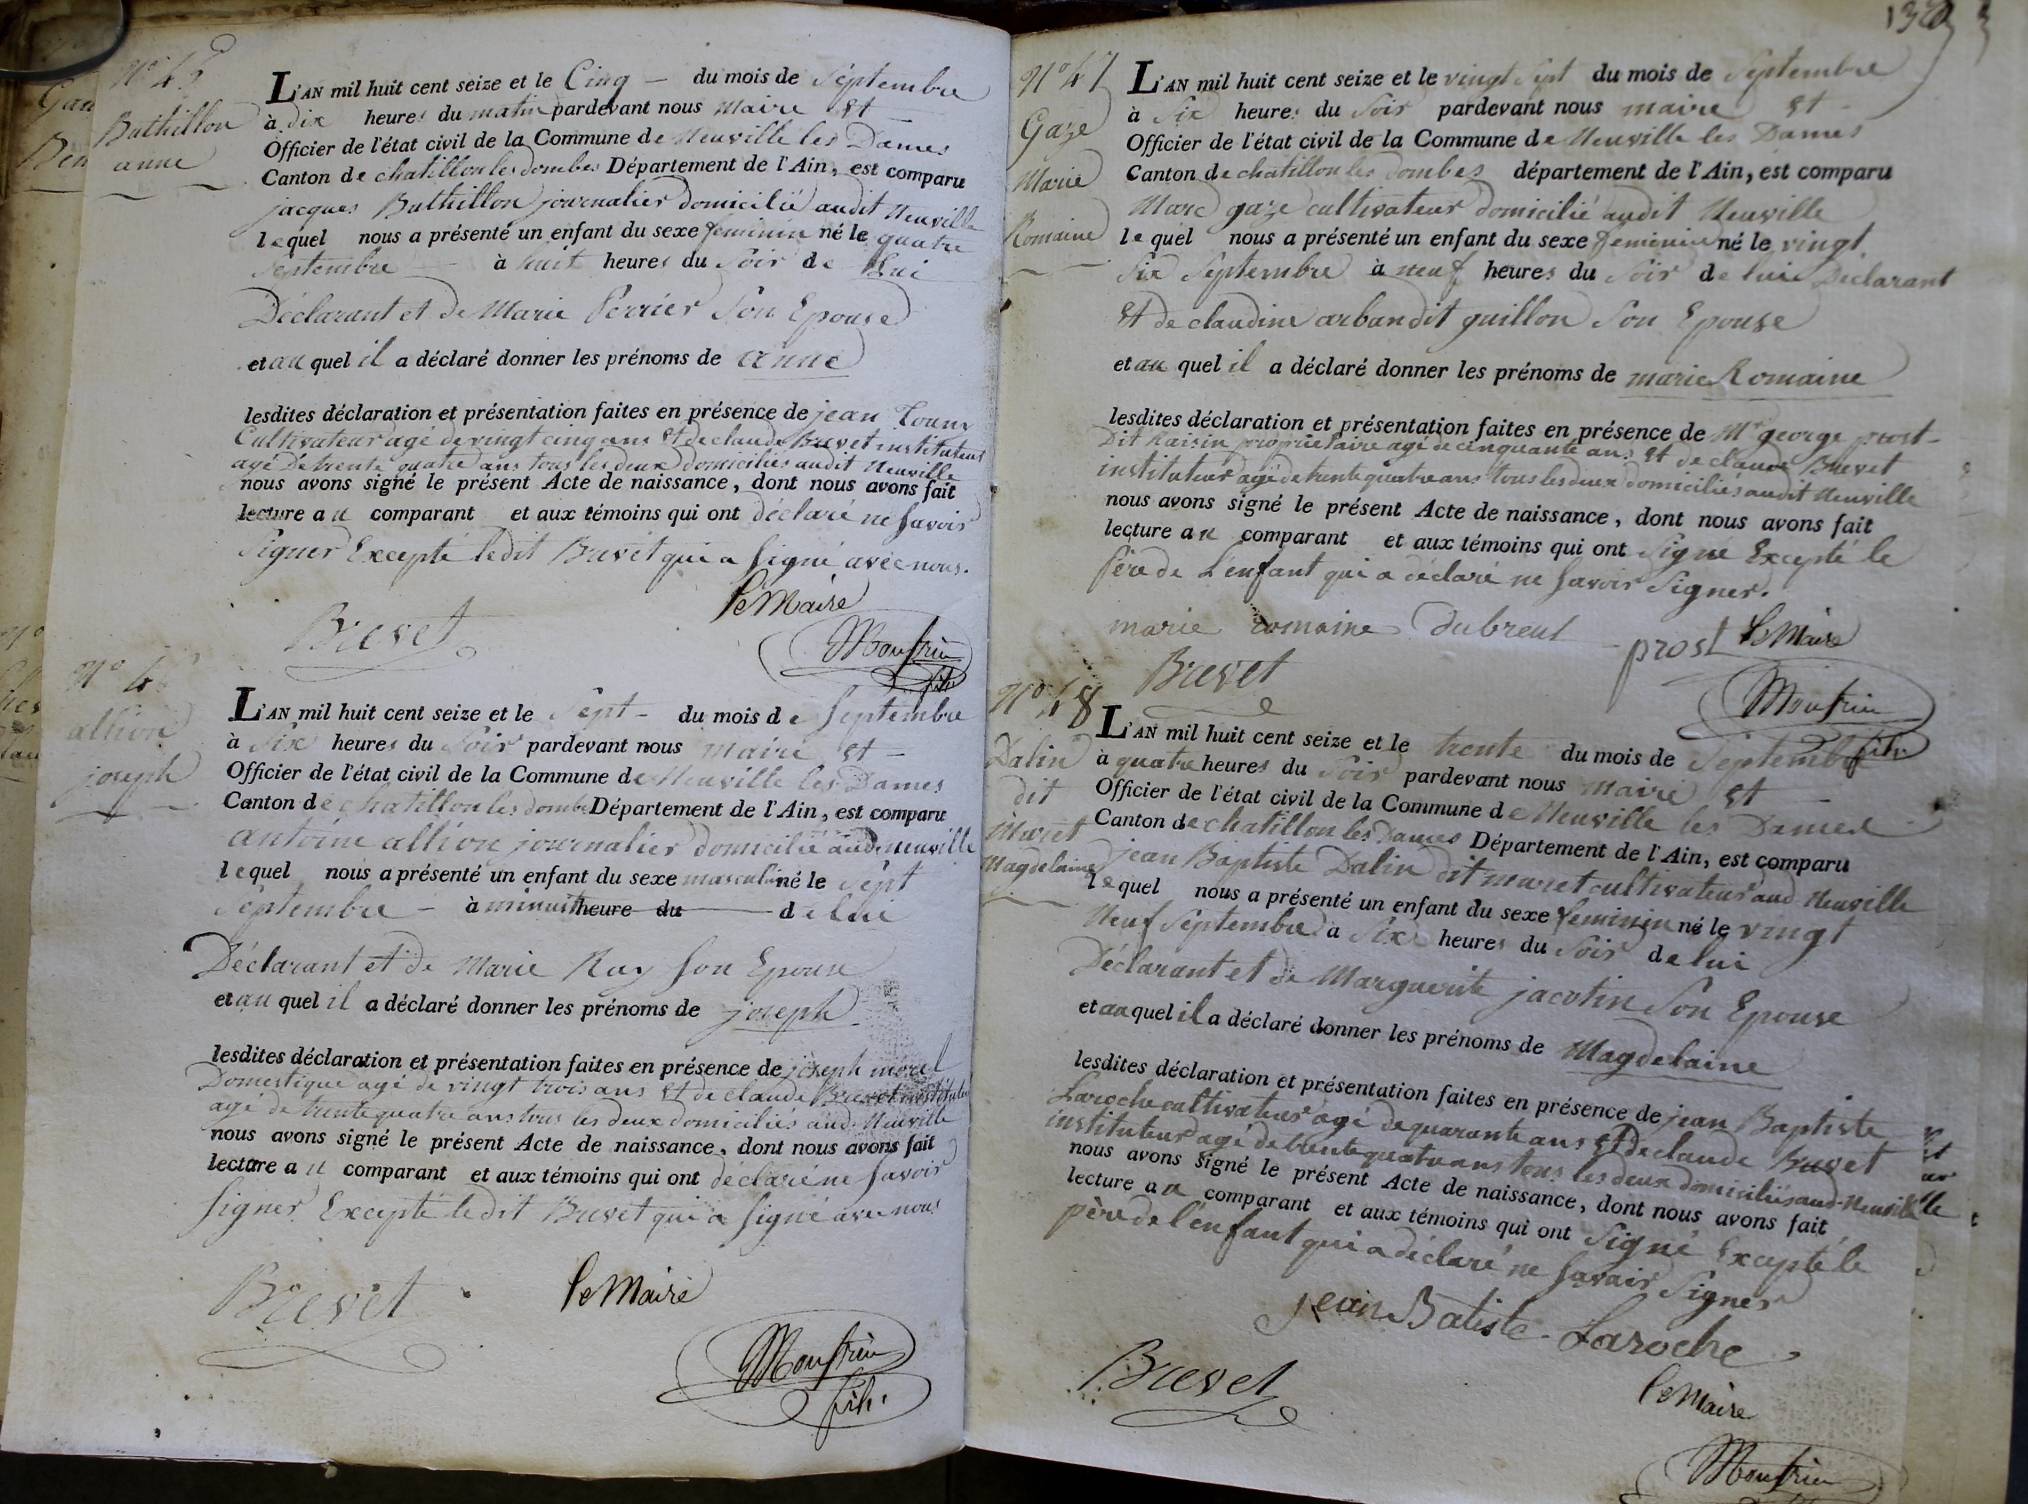 N° 45
Bathillon
anne
L'AN mil huit cent seize et le Cinq - du mois de Septembre
à dix heures du matin pardevant nous Maire Et
Officier de l'état civil de la Commune de Neuville les Dames
Canton de chatillon les dombes Département de l'Ain, est comparu
jacques Bathillon journalier domicilié audit Neuville
lequel nous a présenté un enfant du sexe feminin né le quatre
Septembre à huit heures du Soir de Lui
Déclarant et de Marie Perrier Son Epouse
et au quel il a déclaré donner les prénoms de anne
lesdites déclaration et présentation faites en présence de jean
Cultivateur agé de vingt cinq ans Et de claude Brevet instituteur
agé De trente quatre ans tous les deux domiciliés audit Neuville
nous avons signé le présent Acte de naissance, dont nous avons fait
lecture au comparant et aux témoins qui ont déclaré ne Savoir
Signer Excepté ledit Brevet qui a Signé avec nous.
Brevet
le Maire
Monfrin
fils
N° 46
allion
joseph
L'AN mil huit cent seize et le Sept - du mois de Septembre
à Six heures du Soir pardevant nous maire Et -
Officier de l'état civil de la Commune de Neuville les Dames
Canton de chatillon les dombes Département de l'Ain, est comparu
antoine allion journalier domicilié aud. neuville
lequel nous a présenté un enfant du sexe masculin né le Sept
Septembre - à minuit heure du de lui
Déclarant et de Marie Ray Son Epouse
et au quel il a déclaré donner les prénoms de joseph
lesdites déclaration et présentation faites en présence de joseph morel
Domestique agé de vingt trois ans Et de claude Brevet instituteur
agé de trente quatre ans tous les deux domiciliés aud. Neuville
nous avons signé le présent Acte de naissance, dont nous avons fait
lecture au comparant et aux témoins qui ont déclaré ne Savoir
Signer Excepté ledit Brevet qui a Signé avec nous
Brevet
le Maire
Monfrin
fils.
N° 47
Gaze
Marie
Romaine
L'AN mil huit cent seize et le vingt Sept du mois de Septembre
à Six heures du Soir pardevant nous maire Et -
Officier de l'état civil de la Commune de Neuville les Dames
Canton de chatillon les dombes département de l'Ain, est comparu
Marc gaze cultivateur domicilié audit Neuville
lequel nous a présenté un enfant du sexe feminin né le vingt
Six Septembre à neuf heures du Soir de lui Déclarant
Et de claudine arban dit guillon Son Epouse
et au quel il a déclaré donner les prénoms de marie Romaine
lesdites déclaration et présentation faites en présence de Mr george prost
Dit Raisin proprietaire agé de cinquante ans Et de claude Brevet
instituteur agé de trente quatre ans tous les deux domiciliés audit Neuville
nous avons signé le présent Acte de naissance, dont nous avons fait
lecture au comparant et aux témoins qui ont Signé Excepté le
Père de L'enfant qui a déclaré ne Savoir Signer.
marie romaine Dubreul
prost le Maire
Brevet
Monfrin
fils
N° 48
Dalin
dit
Maret
Magdelaine
L'AN mil huit cent seize et le trente du mois de Septembre
à quatre heures du Soir pardevant nous Maire Et -
Officier de l'état civil de la Commune de Neuville les Dames
Canton de chatillon les Dames Département de l'Ain, est comparu
jean Baptiste Dalin dit maret cultivateur aud. Neuville
lequel nous a présenté un enfant du sexe feminin né le vingt
Neuf Septembre à Six heures du Soir de lui
Déclarant et de Marguerite jacotin Son Epouse
et au quel il a déclaré donner les prénoms de Magdelaine
lesdites déclaration et présentation faites en présence de jean Baptiste
Laroche cultivateur agé de quarante ans Et de claude Brevet
instituteur agé de trente quatre ans tous les deux domiciliés aud. Neuville
nous avons signé le présent Acte de naissance, dont nous avons fait
lecture au comparant et aux témoins qui ont Signé Excepté le
père de l'enfant qui a déclaré ne Savoir Signer
jean Batiste Laroche
Brevet
le Maire
Monfrin